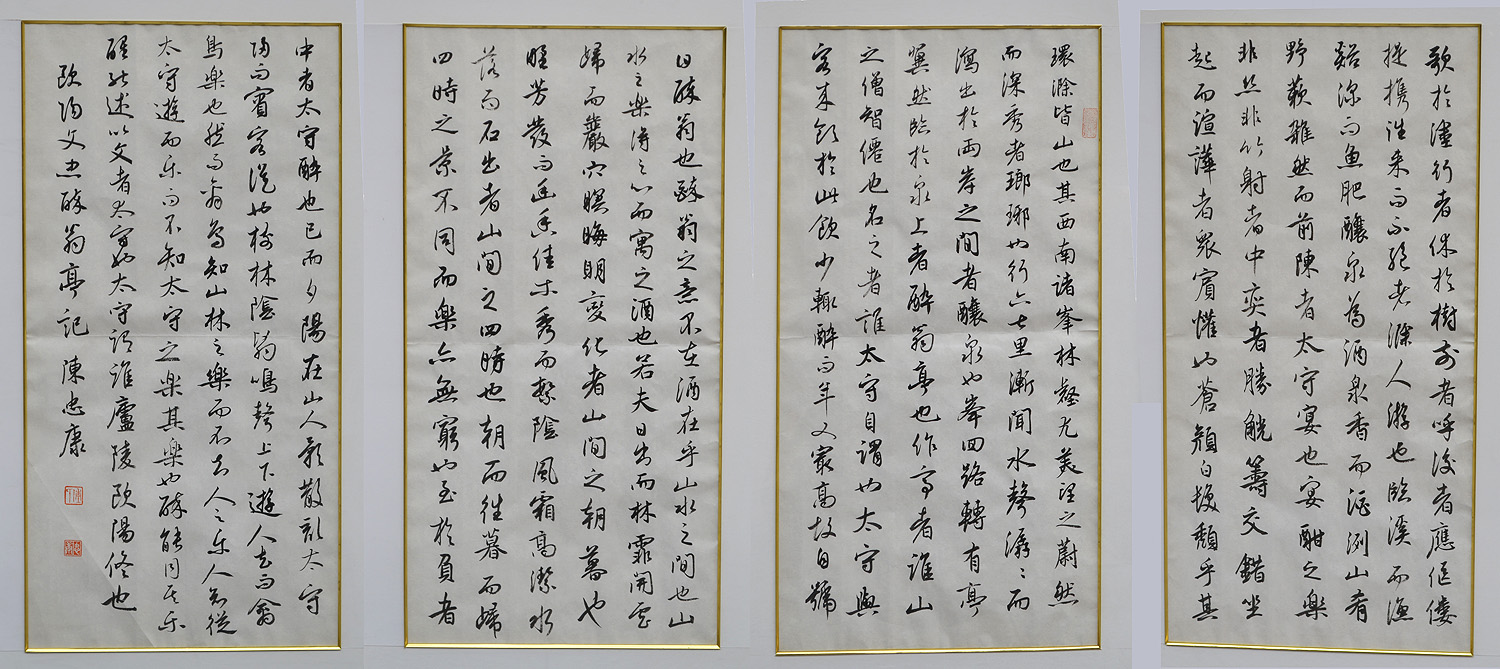 環滁皆山也其西南諸峯林壑尤美望之蔚然
而深秀者瑯琊也行六七里漸聞水聲潺〻而
瀉出於兩峯之間者釀泉也峯回路轉有亭
翼然臨於泉上者醉翁亭也作亭者誰山
之僧智僊也名之者誰太守自謂也太守與
客来飲於此飲少輒醉而年又最高故自號
曰醉翁也醉翁之意不在酒在乎山水之間也山
水之樂得之心而寓之酒也若夫日出而林霏開雲
歸而巖穴暝晦明變化者山間之朝暮也
野芳發而幽香佳木秀而繁陰風霜高潔水
落而石出者山間之四時也朝而往暮而歸
四時之景不同而樂亦無窮也至於負者
歌於塗行者休於樹前者呼後者應傴僂
提攜往来而不絕者滁人遊也臨溪而漁
谿深而魚肥釀泉為酒泉香而酒洌山肴
野蔌雜然而前陳者太守宴也宴酣之樂
非絲非竹射者中奕者勝觥籌交錯坐
起而諠譁者眾賓懽也蒼顏白髮頹乎其
中者太守醉也已而夕陽在山人影散亂太守
歸而賓客從也樹林陰翳鳴聲上下遊人去而禽
鳥樂也然而禽鳥知山林之樂而不知人之樂人知從
太守遊而樂而不知太守之樂其樂也醉能同其樂
醒能述以文者太守也太守謂誰廬陵歐陽修也
歐陽文忠醉翁亭記 陳忠康